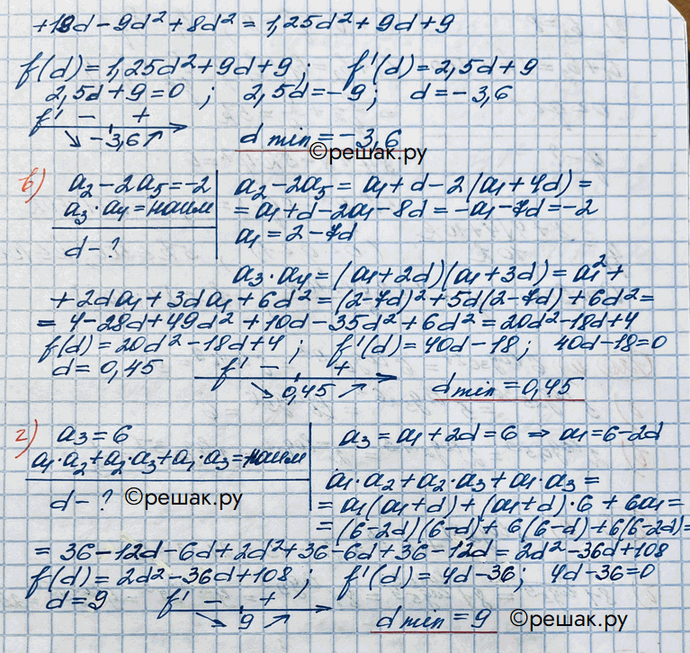 +18d-9d²+8d² = 1,25d²+9d+9
f(d)=1,25d²+9d+9; f'(d)=2,5d+9
2,5d+9=0; 2,5d=-9; d=-3,6
f' - +
↘ -3,6 ↗ d min = -3,6
©решак.ру
в) a₂-2a₅=-2 a₂-2a₅ = a₁+d-2(a₁+4d)=
a₃·a₄=наим =a₁+d-2a₁-8d=-a₁-7d=-2
d-? a₁=2-7d
a₃·a₄=(a₁+2d)(a₁+3d)=a₁²+
+2da₁+3da₁+6d²=(2-7d)²+5d(2-7d)+6d²=
=4-28d+49d²+10d-35d²+6d²=20d²-18d+4
f(d)=20d²-18d+4; f'(d)=40d-18; 40d-18=0
d=0,45 f' - +
↘ 0,45 ↗ d min = 0,45
г) a₃=6 a₃=a₁+2d=6 ⇒ a₁=6-2d
a₁·a₂+a₂·a₃+a₁·a₃=наим a₁·a₂+a₂·a₃+a₁·a₃=
d-? ©решак.ру =a₁(a₁+d)+(a₁+d)·6+6a₁=
=(6-2d)(6-d)+6(6-d)+6(6-2d)=
=36-12d-6d+2d²+36-6d+36-12d=2d²-36d+108
f(d)=2d²-36d+108; f'(d)=4d-36; 4d-36=0
d=9 f' - +
↘ 9 ↗ d min = 9 ©решак.ру